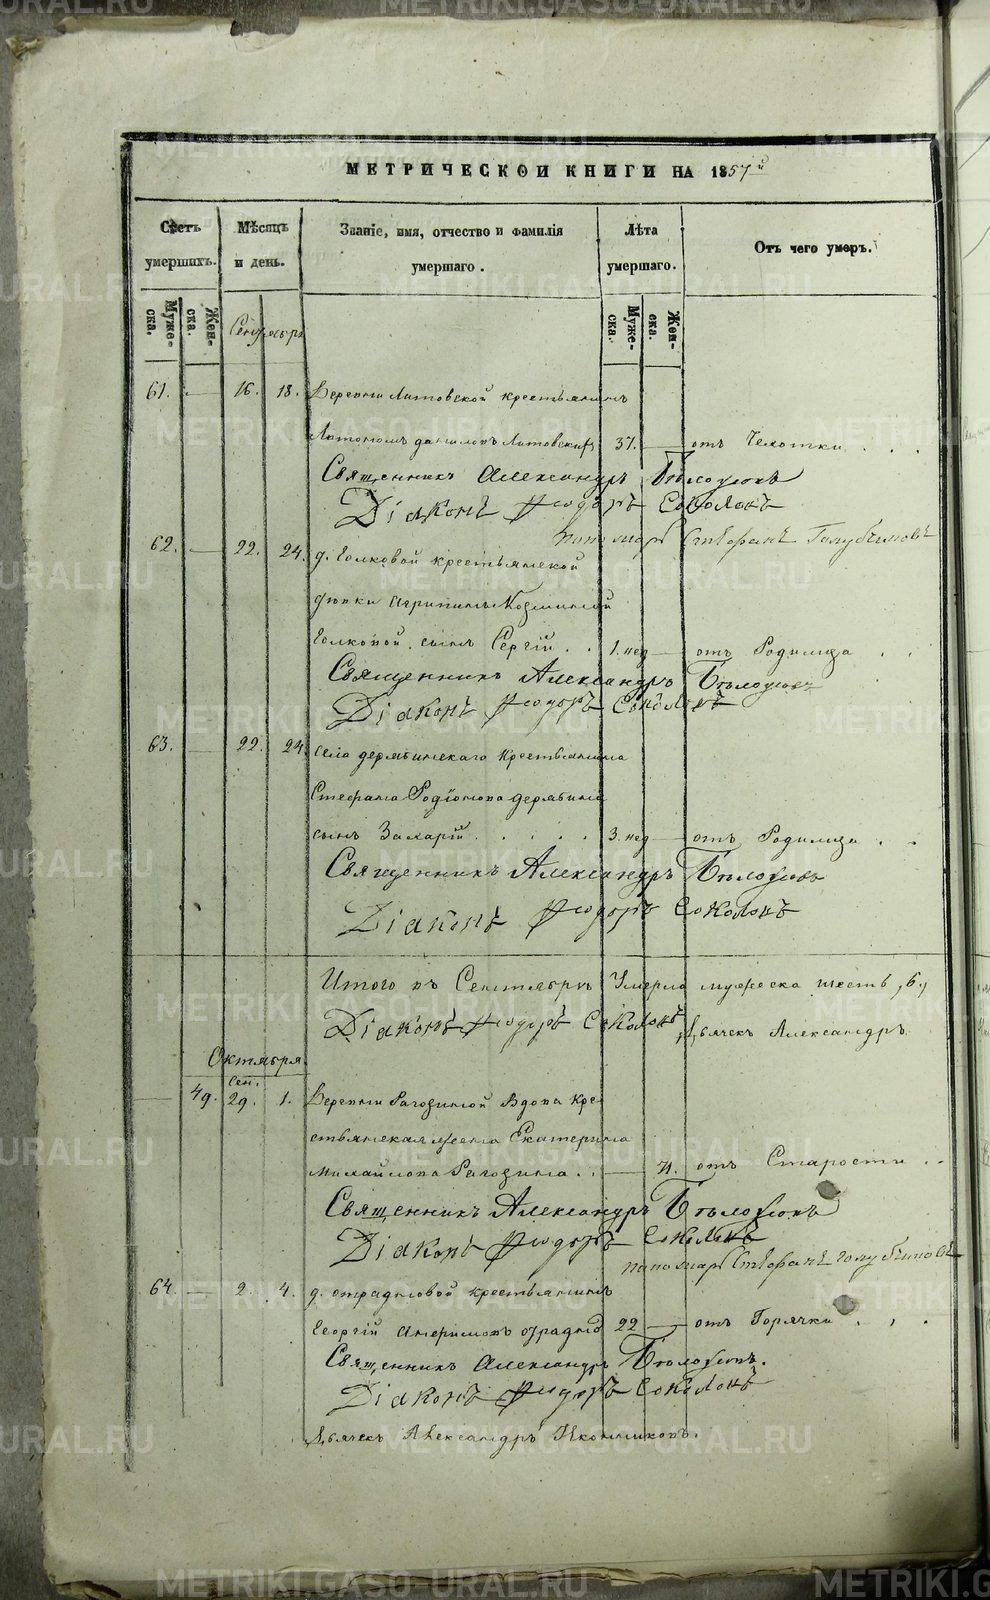 МЕТРИЧЕСКОЙ КНИГИ НА 1857й
Счетъ умершихъ.
Мѣсяцъ и день.
Званіе, имя, отчество и фамилія умершаго.
Лѣта умершаго.
Отъ чего умеръ.
Муже-ска.
Жен-ска.
Муже-ска.
Жен-ска.
Сентября
61. — 16. 18. Деревни Литовской крестьянинъ
Даниловъ Литовскихъ 37. — отъ Чехотки . . .
Священникъ Александръ Бѣлоусовъ
Діаконъ Ѳеодоръ Соколовъ
пономарь Стефанъ Голубчиковъ
62. — 22. 24. д. Голковой крестьянской
дѣвки Агрипины Козминой
Голковой сынъ Сергій . . 1. нед — отъ Родимца . .
Священникъ Александръ Бѣлоусовъ
Діаконъ Ѳеодоръ Соколовъ
63. — 22. 24. села Дерябинскаго крестьянина
Стефана Родіонова Дерябина
сынъ Захарій . . . . . 3. нед — отъ Родимца . .
Священникъ Александръ Бѣлоусовъ
Діаконъ Ѳеодоръ Соколовъ
Итого въ Сентябрѣ Умерло мужеска шесть, 6.,
Діаконъ Ѳеодоръ Соколовъ Дьячекъ Александръ
Октября
сен.
— 49. 29. 1. Деревни Рагозиной вдова кре-
стьянская жена Екатерина
Михайлова Рагозина . . — 71. отъ Старости . .
Священникъ Александръ Бѣлоусовъ
Діаконъ Ѳеодоръ Соколовъ
пономарь Стефанъ Голубчиковъ
64. — 2. 4. д. Отрадновой крестьянинъ
Георгій 22 — отъ Горячки . . .
Священникъ Александръ Бѣлоусовъ.
Діаконъ Ѳеодоръ Соколовъ
Дьячекъ Александръ Иконниковъ.
METRIKI.GASO-URAL.RU